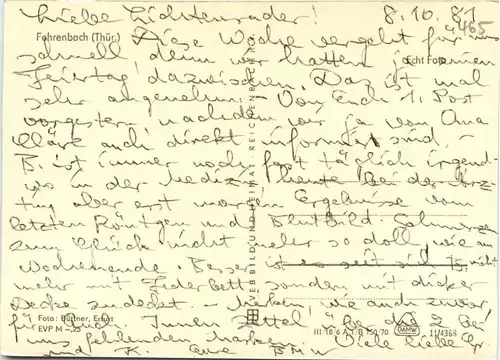 Liebe Lichtenrader! 8.10.81
465
Fehrenbach (Thür.) Diese Woche vergeht für uns
schnell, denn wir hatten ja einen
Echt Foto
Feiertag dazwischen. Das ist mal
sehr angenehm. Von Euch 1. Post
vorgestern nachdem wir ja von Oma
Kläre auch direkt informiert sind.
B. ist immer noch fast täglich irgend-
wo in der Mediz. heute bei der Ärz-
tin, aber erst morgen Ergebnisse vom
letzten Röntgen und Blutbild. Schmerzen
zum Glück nicht mehr so doll, wie am
Wochenende. Besser ist es seit sich B. nicht
mehr mit Federbett sondern mit dicker
Decke zudeckt. wie auch zuvor
Foto: Büttner, Erfurt
für und Innen
EVP M -,25
III 18 6 A 1 B 150/70
DAMW
11/4368
uns fehlenden Marken. Viele liebe Gr.
und K. Eure
BILD UND HEIMAT REICHENBACH